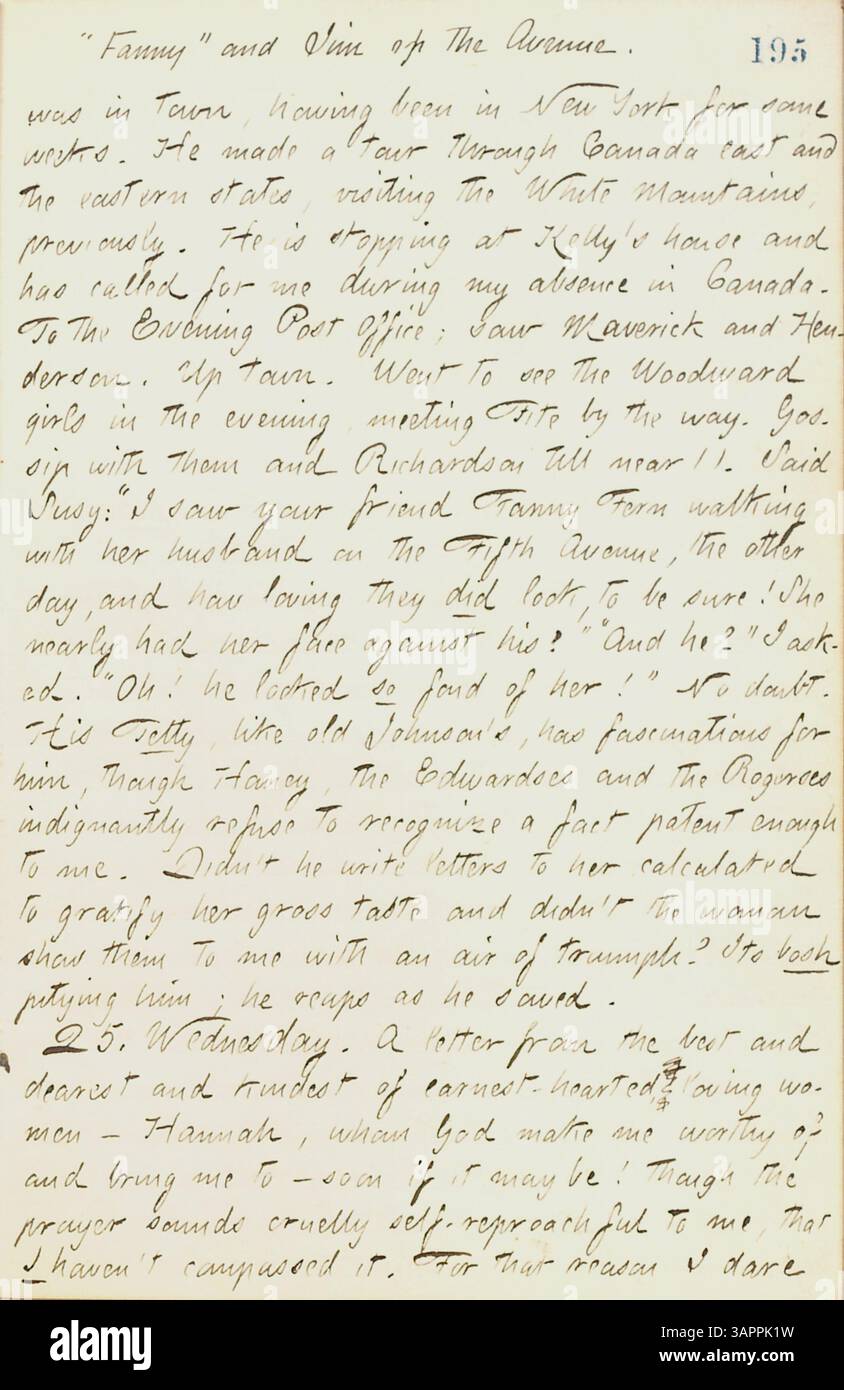 "Fanny" and Jim up the Avenue.
195
was in town, having been in New York for some
weeks. He made a tour through Canada east and
the eastern states, visiting the White Mountains,
previously. He is stopping at Kelly's house and
has called for me during my absence in Canada.
To the Evening Post Office; saw Maverick and Hen-
derson. Up town. Went to see the Woodward
girls in the evening, meeting Fite by the way. Gos-
sip with them and Richardson till near 11. Said
Susy: "I saw your friend Fanny Fern walking
with her husband on the Fifth Avenue, the other
day, and how loving they did look, to be sure! She
nearly had her face against his!" "And he?" I ask-
ed. "Oh! he looked so fond of her!" No doubt.
His Tetty, like old Johnson's, has fascinations for
him, though Haney, the Edwardses and the Rogerses
indignantly refuse to recognize a fact patent enough
to me. Didn't he write letters to her calculated
to gratify her gross taste and didn't the woman
show them to me with an air of triumph? Its bosh
pitying him; he reaps as he sowed.
25. Wednesday. A letter from the best and
dearest and kindest of earnest-hearted, loving wo-
men – Hannah, whom God make me worthy of
and bring me to – soon if it may be! though the
prayer sounds cruelly self-reproachful to me, that
I haven't compassed it. For that reason I dare
alamy
Image ID: 3APPK1W
www.alamy.com